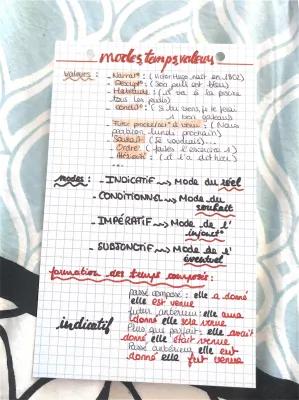 modes, temps, valeurs
valeurs : - Narrat° : (Victor Hugo nait en 1802)
- Descript° : (Son pull est bleu)
- Habitude : (il va à la piscine
tous les jeudis)
- condit° : (Si tu viens, je te ferai
1 bon gateau)
Futur proche/act° à venir : (Nous
parlons lundi prochain)
- Souhait : (Je voudrais...)
- Ordre : (faites l'exercice 1)
- (il l'a dit hier)
...
modes : - INDICATIF → Mode du réel
- CONDITIONNEL → Mode du
souhait
- IMPÉRATIF → Mode de l'
injonct°
- SUBJONCTIF → Mode de l'
éventuel
formation des temps composés :
indicatif
passé composé : elle a donné
elle est venue
futur antérieur : elle aura
donné elle sera venue
Plus que parfait : elle avait
donné elle était venue
Passé antérieur elle eut
donné elle fut venue